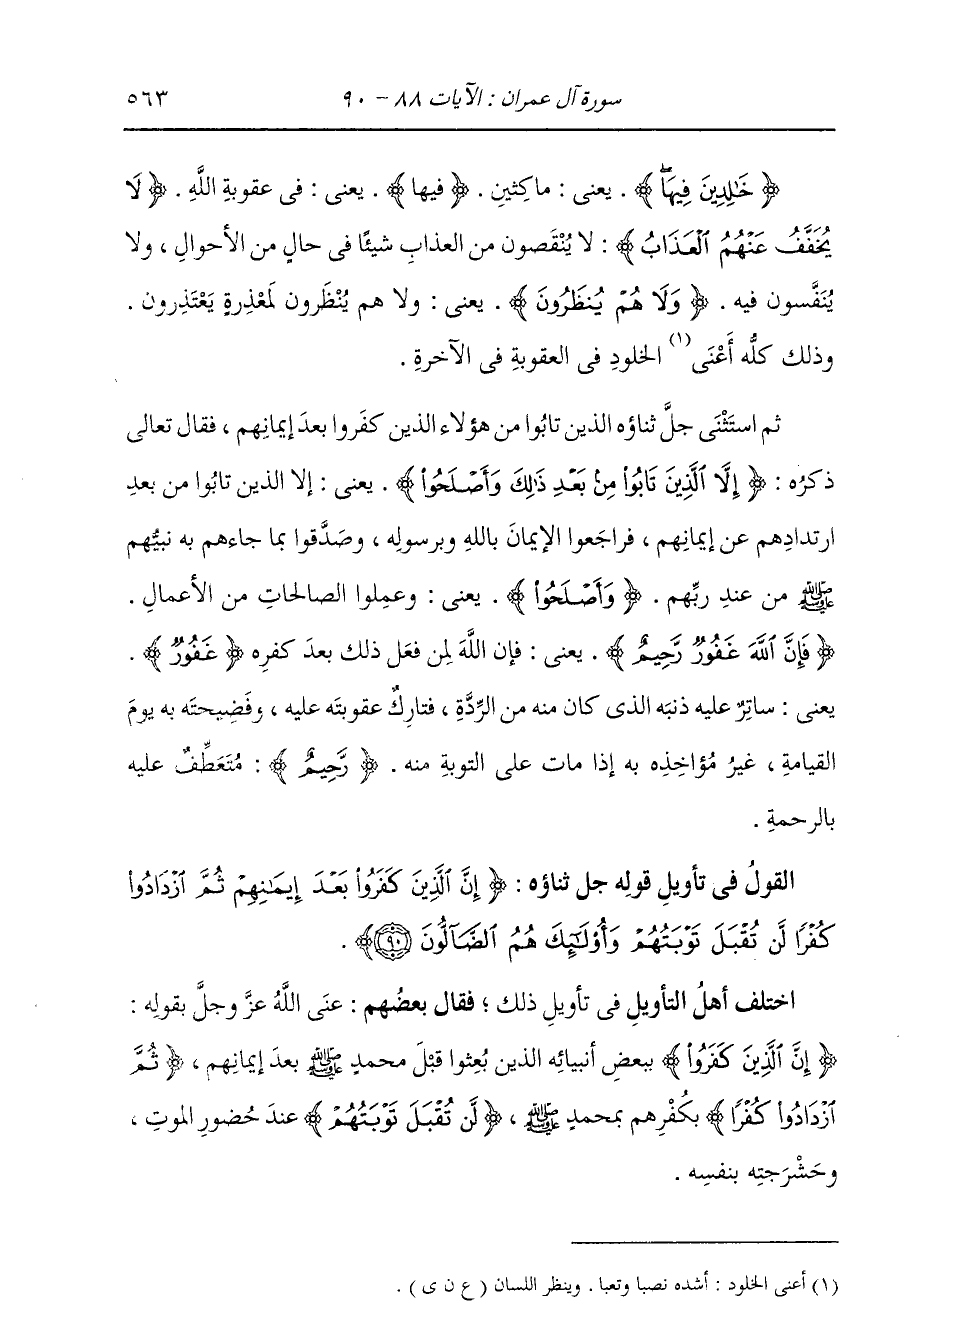 سورة آل عمران : الآيات ٨٨ - ٩٠ ٥٦٣
﴿ خَٰلِدِينَ فِيهَاۖ ﴾ . يعنى : ماكثين . ﴿ فيها ﴾ . يعنى : فى عقوبةِ اللَّهِ . ﴿ لَا
يُخَفَّفُ عَنْهُمُ ٱلْعَذَابُ ﴾ : لا يُنْقَصون من العذابِ شيئًا فى حالٍ من الأحوالِ ، ولا
يُنَفَّسون فيه . ﴿ وَلَا هُمْ يُنظَرُونَ ﴾ . يعنى : ولا هم يُنْظَرون لمَعْذِرةٍ يَعْتَذِرون .
وذلك كلُّه أَعْنَى(١) الخلودِ فى العقوبةِ فى الآخرةِ .
ثم استَثْنَى جلَّ ثناؤه الذين تابُوا من هؤلاء الذين كفَروا بعدَ إيمانِهم ، فقال تعالى
ذكرُه : ﴿ إِلَّا ٱلَّذِينَ تَابُوا۟ مِنۢ بَعْدِ ذَٰلِكَ وَأَصْلَحُوا۟ ﴾ . يعنى : إلا الذين تابُوا من بعدِ
ارتدادِهم عن إيمانِهم ، فراجَعوا الإيمانَ باللهِ وبرسولِه ، وصَدَّقوا بما جاءهم به نبيُّهم
ﷺ من عندِ ربِّهم . ﴿ وَأَصْلَحُوا۟ ﴾ . يعنى : وعمِلوا الصالحاتِ من الأعمالِ .
﴿ فَإِنَّ ٱللَّهَ غَفُورٌ رَّحِيمٌ ﴾ . يعنى : فإن اللَّهَ لمن فعَل ذلك بعدَ كفرِه ﴿ غَفُورٌ ﴾ .
يعنى : ساتِرٌ عليه ذنبَه الذى كان منه من الرِّدَّةِ ، فتارِكٌ عقوبتَه عليه ، وفَضِيحتَه به يومَ
القيامةِ ، غيرُ مُؤاخِذِه به إذا مات على التوبةِ منه . ﴿ رَّحِيمٌ ﴾ : مُتَعَطِّفٌ عليه
بالرحمةِ .
القولُ فى تأويلِ قولِه جل ثناؤه : ﴿ إِنَّ ٱلَّذِينَ كَفَرُوا۟ بَعْدَ إِيمَٰنِهِمْ ثُمَّ ٱزْدَادُوا۟
كُفْرًا لَّن تُقْبَلَ تَوْبَتُهُمْ وَأُو۟لَٰٓئِكَ هُمُ ٱلضَّآلُّونَ ٩٠ ﴾ .
اختلف أهلُ التأويلِ فى تأويلِ ذلك ؛ فقال بعضُهم : عنَى اللَّهُ عزَّ وجلَّ بقولِه :
﴿ إِنَّ ٱلَّذِينَ كَفَرُوا۟ ﴾ ببعضِ أنبيائِه الذين بُعثوا قبْلَ محمدٍ ﷺ بعدَ إيمانِهم ، ﴿ ثُمَّ
ٱزْدَادُوا۟ كُفْرًا ﴾ بكُفْرِهم بمحمدٍ ﷺ ، ﴿ لَّن تُقْبَلَ تَوْبَتُهُمْ ﴾ عندَ حُضورِ الموتِ ،
وحَشْرَجتِه بنفسِه .
(١) أعنى الخلود : أشده نصبا وتعبا . وينظر اللسان ( ع ن ى ) .